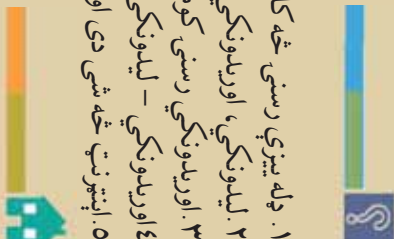 ۱. ډله ییزې رسنۍ څه
۲. لیدونکي، اوریدونکي
۳. اوریدونکي رسنۍ کوم
٤ اوریدونکي – لیدونکي
۵. انټرنټ څه شی دی او